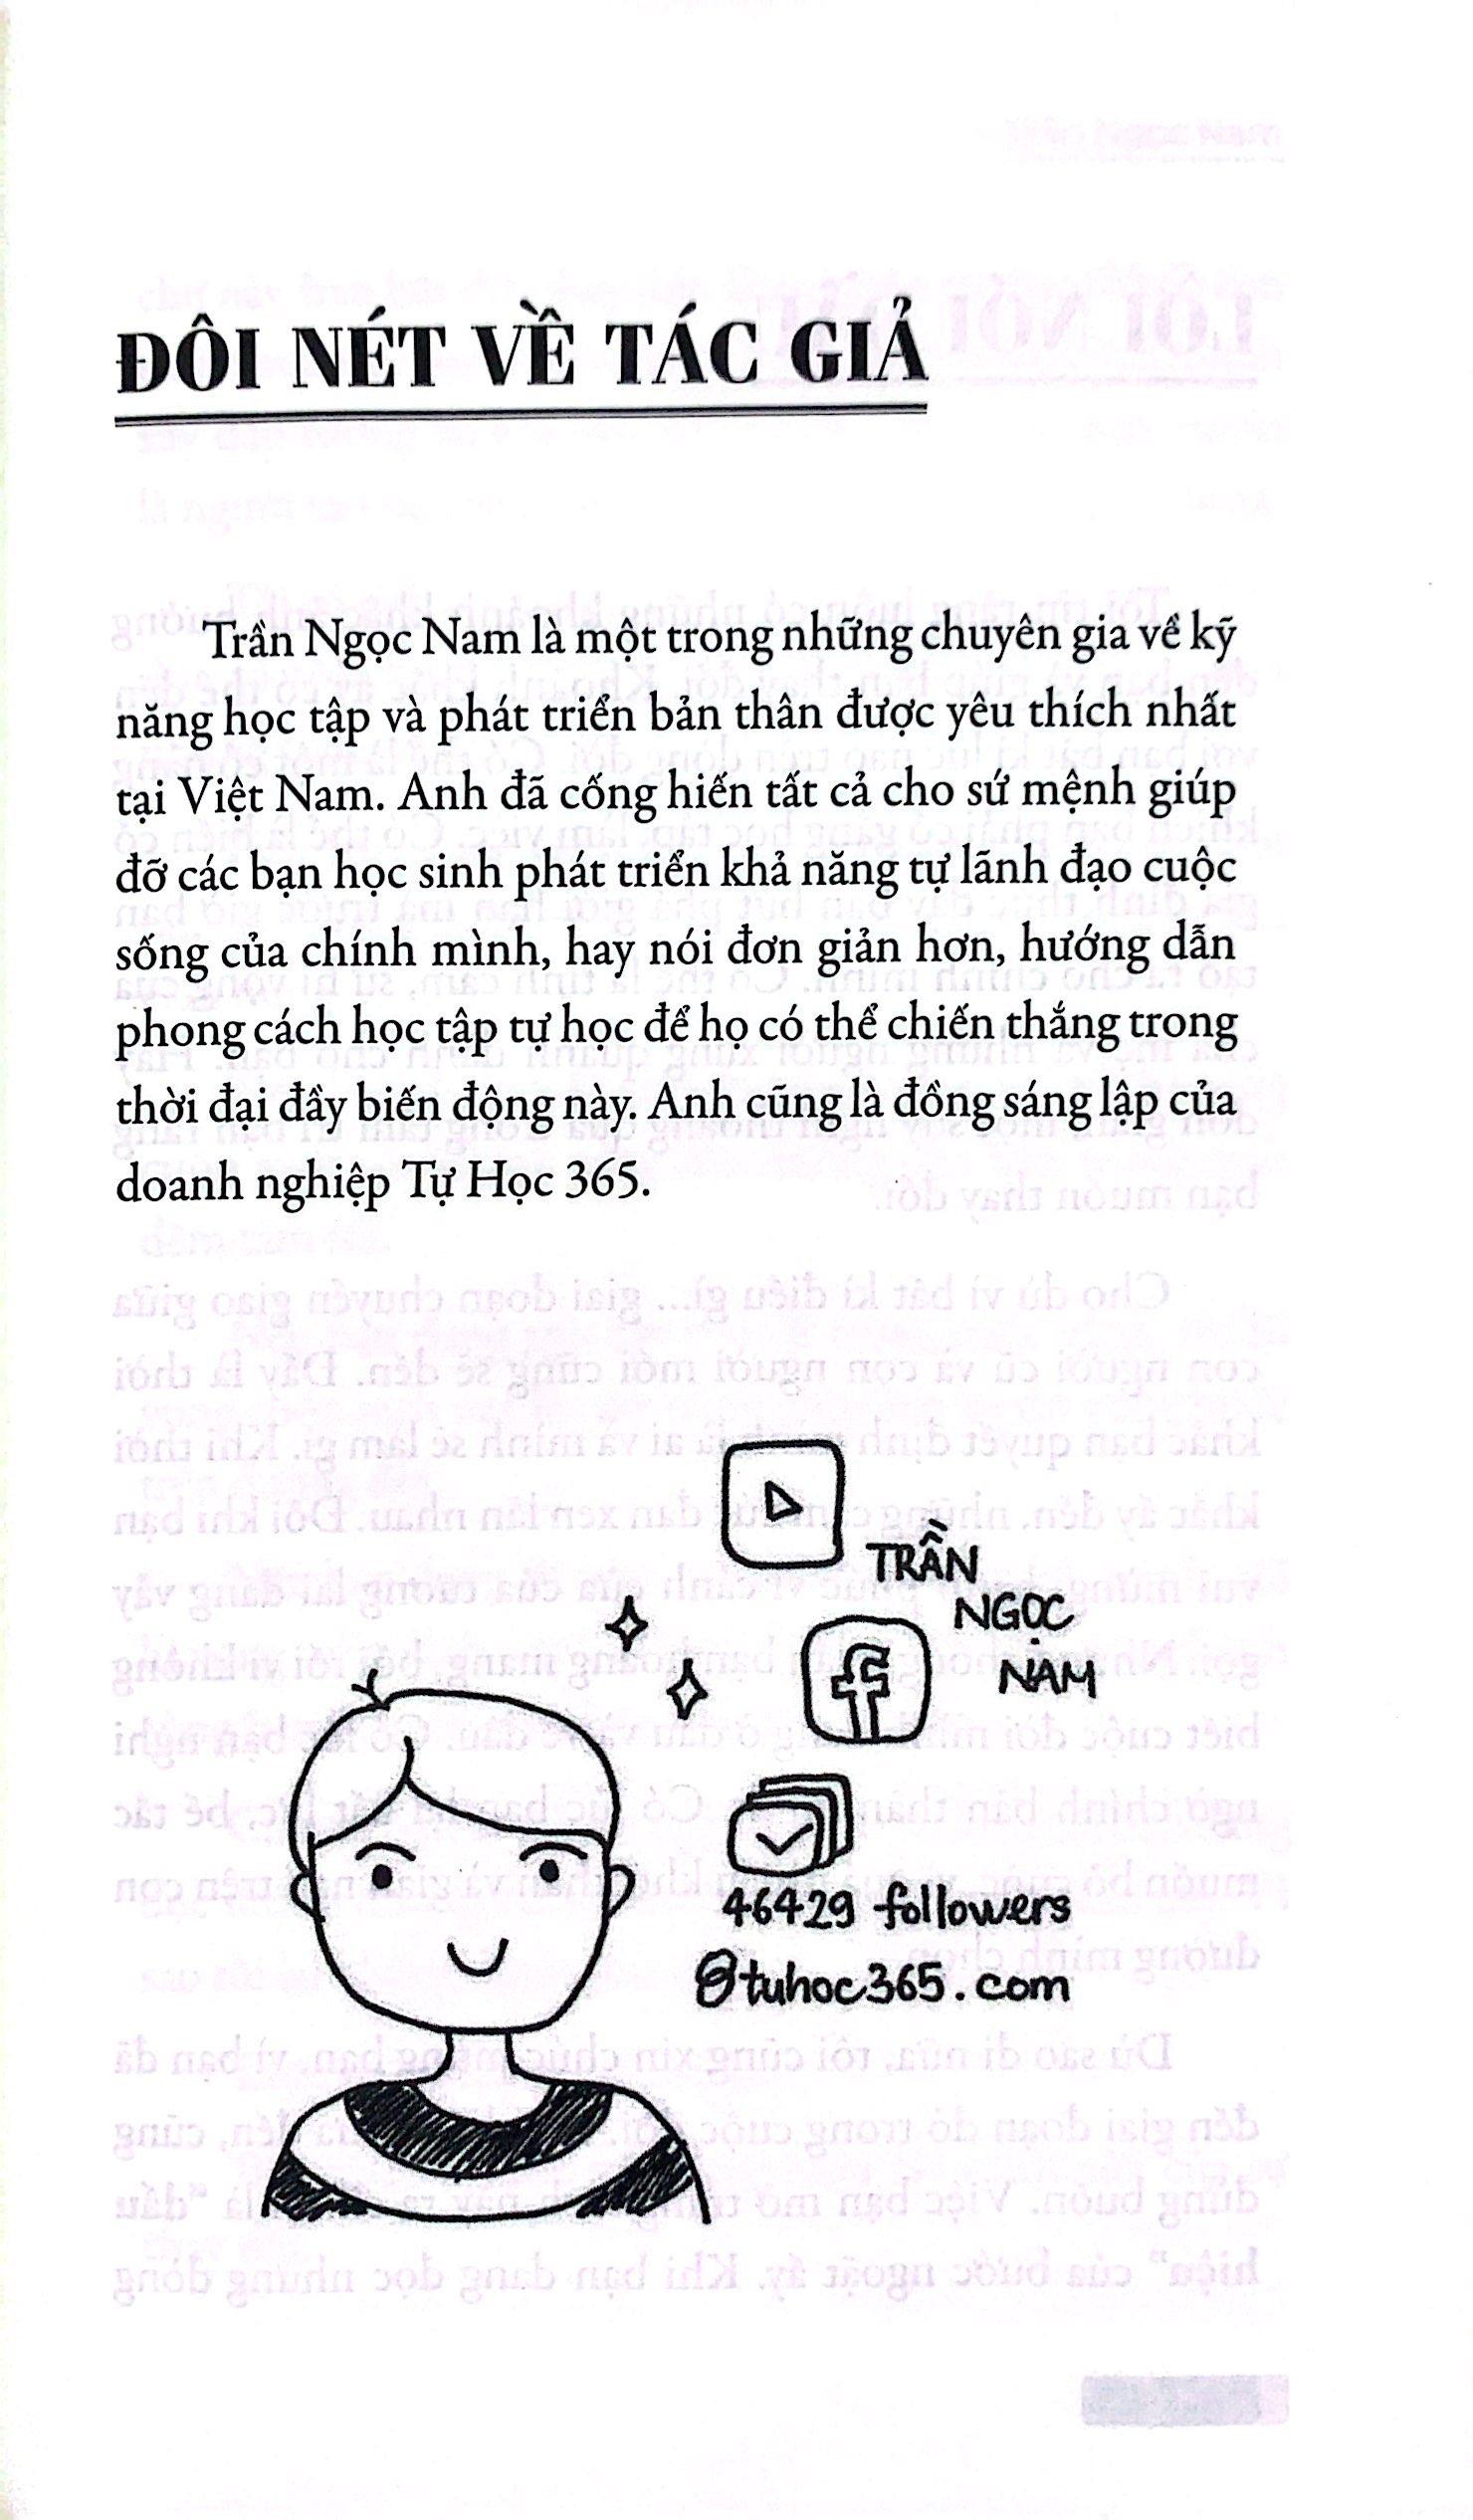 ĐÔI NÉT VỀ TÁC GIẢ
Trần Ngọc Nam là một trong những chuyên gia về kỹ
năng học tập và phát triển bản thân được yêu thích nhất
tại Việt Nam. Anh đã cống hiến tất cả cho sứ mệnh giúp
đỡ các bạn học sinh phát triển khả năng tự lãnh đạo cuộc
sống của chính mình, hay nói đơn giản hơn, hướng dẫn
phong cách học tập tự học để họ có thể chiến thắng trong
thời đại đầy biến động này. Anh cũng là đồng sáng lập của
doanh nghiệp Tự Học 365.
TRẦN
NGỌC
NAM
46429 followers
tuhoc365.com